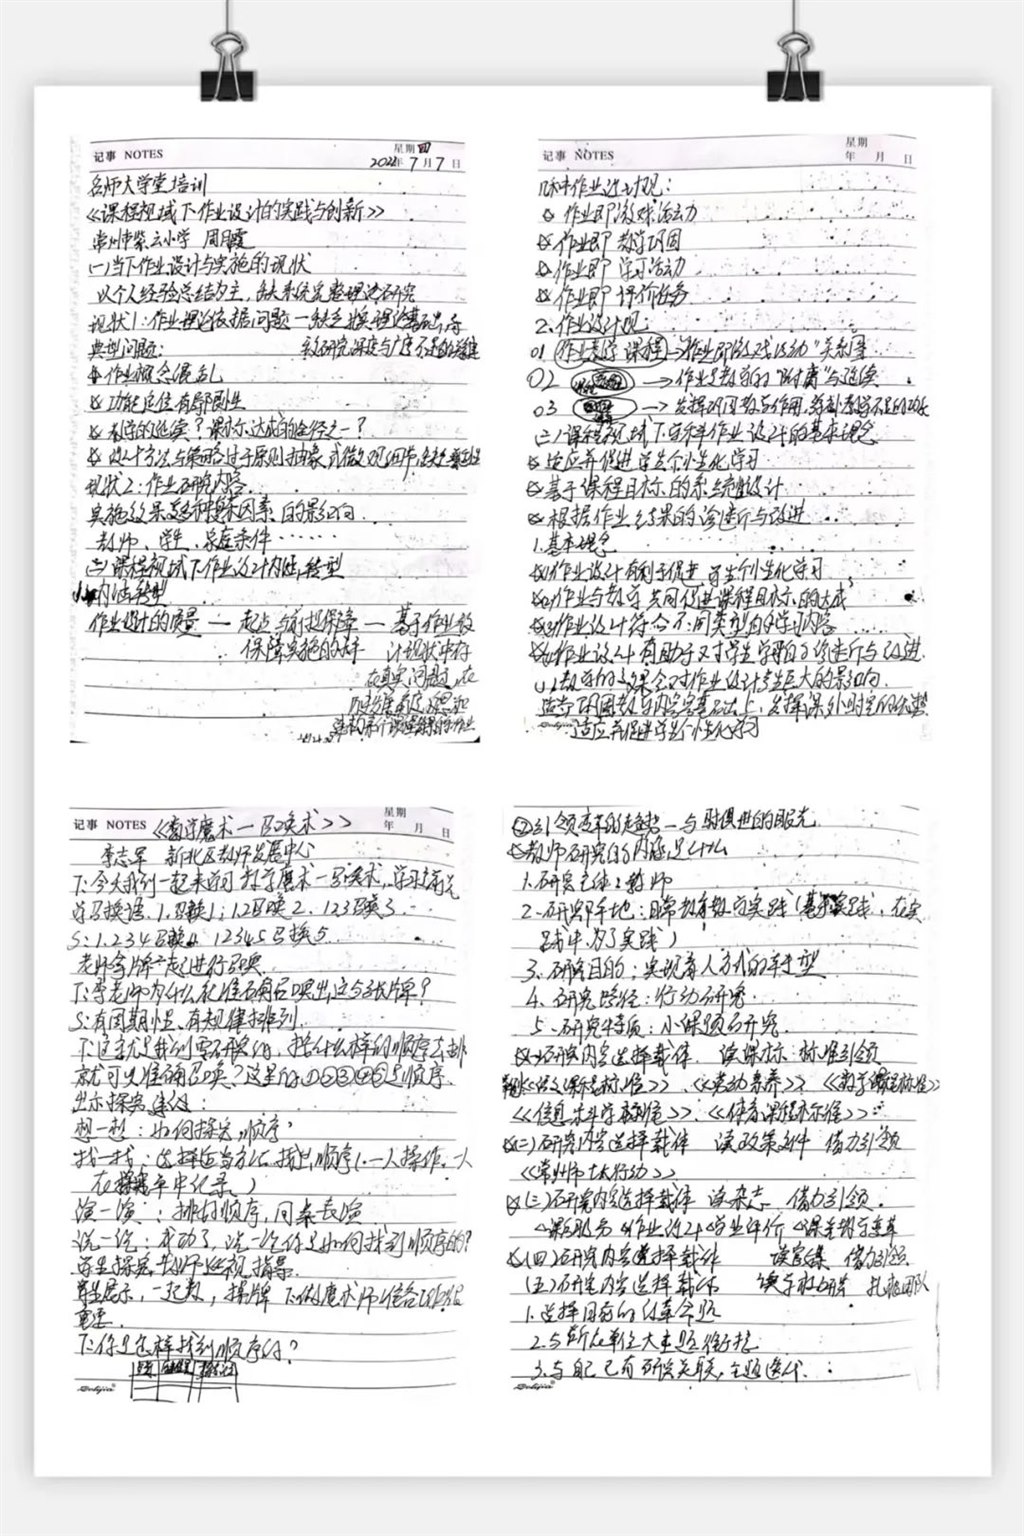 记事 NOTES
星期四
2022年7月7日
名师大学堂培训
《课程视域下作业设计的实践与创新》
常州市紫云小学 周月霞
(一)当下作业设计与实施的现状
以个人经验总结为主,缺失系统完整理论研究
现状1:作业理论依据问题
典型问题:
作业概念混乱
功能定位有局限性
教学的延续?课标达成的途径之一?
现状2:作业研究内容
实施效果受多种因素的影响
教师、学生、家庭条件……
(二)课程视域下作业设计内涵,转型
内涵转型
作业设计的质量 — 起点与前提保障 — 基于作业设
保障实施的 计现状中存
在真实问题,在
记事 NOTES
星期
年 月 日
几种作业设计观:
作业即游戏活动
作业即教学巩固
作业即学习活动
作业即评价任务
2.作业设计观
01 作业 教学 课程 →"作业即游戏活动"关系图
02 → 作业是教学的"附庸"与延续
03 → 发挥巩固教学作用,弥补教学不足的功能
(三)课程视域下学科作业设计的基本理念
适应并促进学生个性化学习
基于课程目标的系统性设计
根据作业结果的诊断与改进
1.基本理念
(1)作业设计有利于促进学生个性化学习
(2)作业与教学共同促进课程目标的达成
(3)作业设计符合不同类型的学习内容
(4)作业设计有助于对学生学习的诊断与改进
教学的效果会对作业设计产生巨大的影响
适应并促进学生个性化学习
记事 NOTES
《数学魔术—召唤术》
星期
年 月 日
李志军 新北区教师发展中心
T:今天我们一起来学习数学魔术—召唤术,学习前先
学召唤语.1召唤1;12召唤2、123召唤3
S:1234召唤4 12345召唤5
老师拿牌一起进行召唤
T:李老师为什么能准确召唤出这5张牌?
S:有周期性、有规律排列
T:这就是我们要研究的,按什么样的顺序去排
就可以准确召唤?这里的①②③④⑤是顺序.
出示探究建议:
想一想:如何探究顺序
找一找:选择适当方法找出顺序(一人操作,一人
在 单中记录。)
演一演:排好顺序,同桌表演
说一说:成功了,说一说你是如何找到顺序的?
学生探究,教师巡视指导.
T:你是怎样找到顺序的?
②引领变革的趋势—与时俱进的眼光
教师研究的内涵是什么
1.研究主体:教师
2.研究阵地:日常教育教学实践(基于实践、在实
践中、为了实践)
3.研究目的:实现育人方式的转型
4.研究路径:行动研究
5.研究特质:小课题研究
(一)研究内容选择载体 读课标:标准引领
《语文课程标准》、《劳动素养》《数学课程标准》
《信息科学标准》、《体育课程标准》
(二)研究内容选择载体 读政策文件 借力引领
(三)研究内容选择载体 读杂志 借力引领
课后服务 作业设计 学业评价 课堂教学变革
(四)研究内容选择载体 读 借力引领
(五)研究内容选择载体 扎根团队
1.选择
2.与所在单位大主题衔接
3.与自己已有研究关联,主题迭代